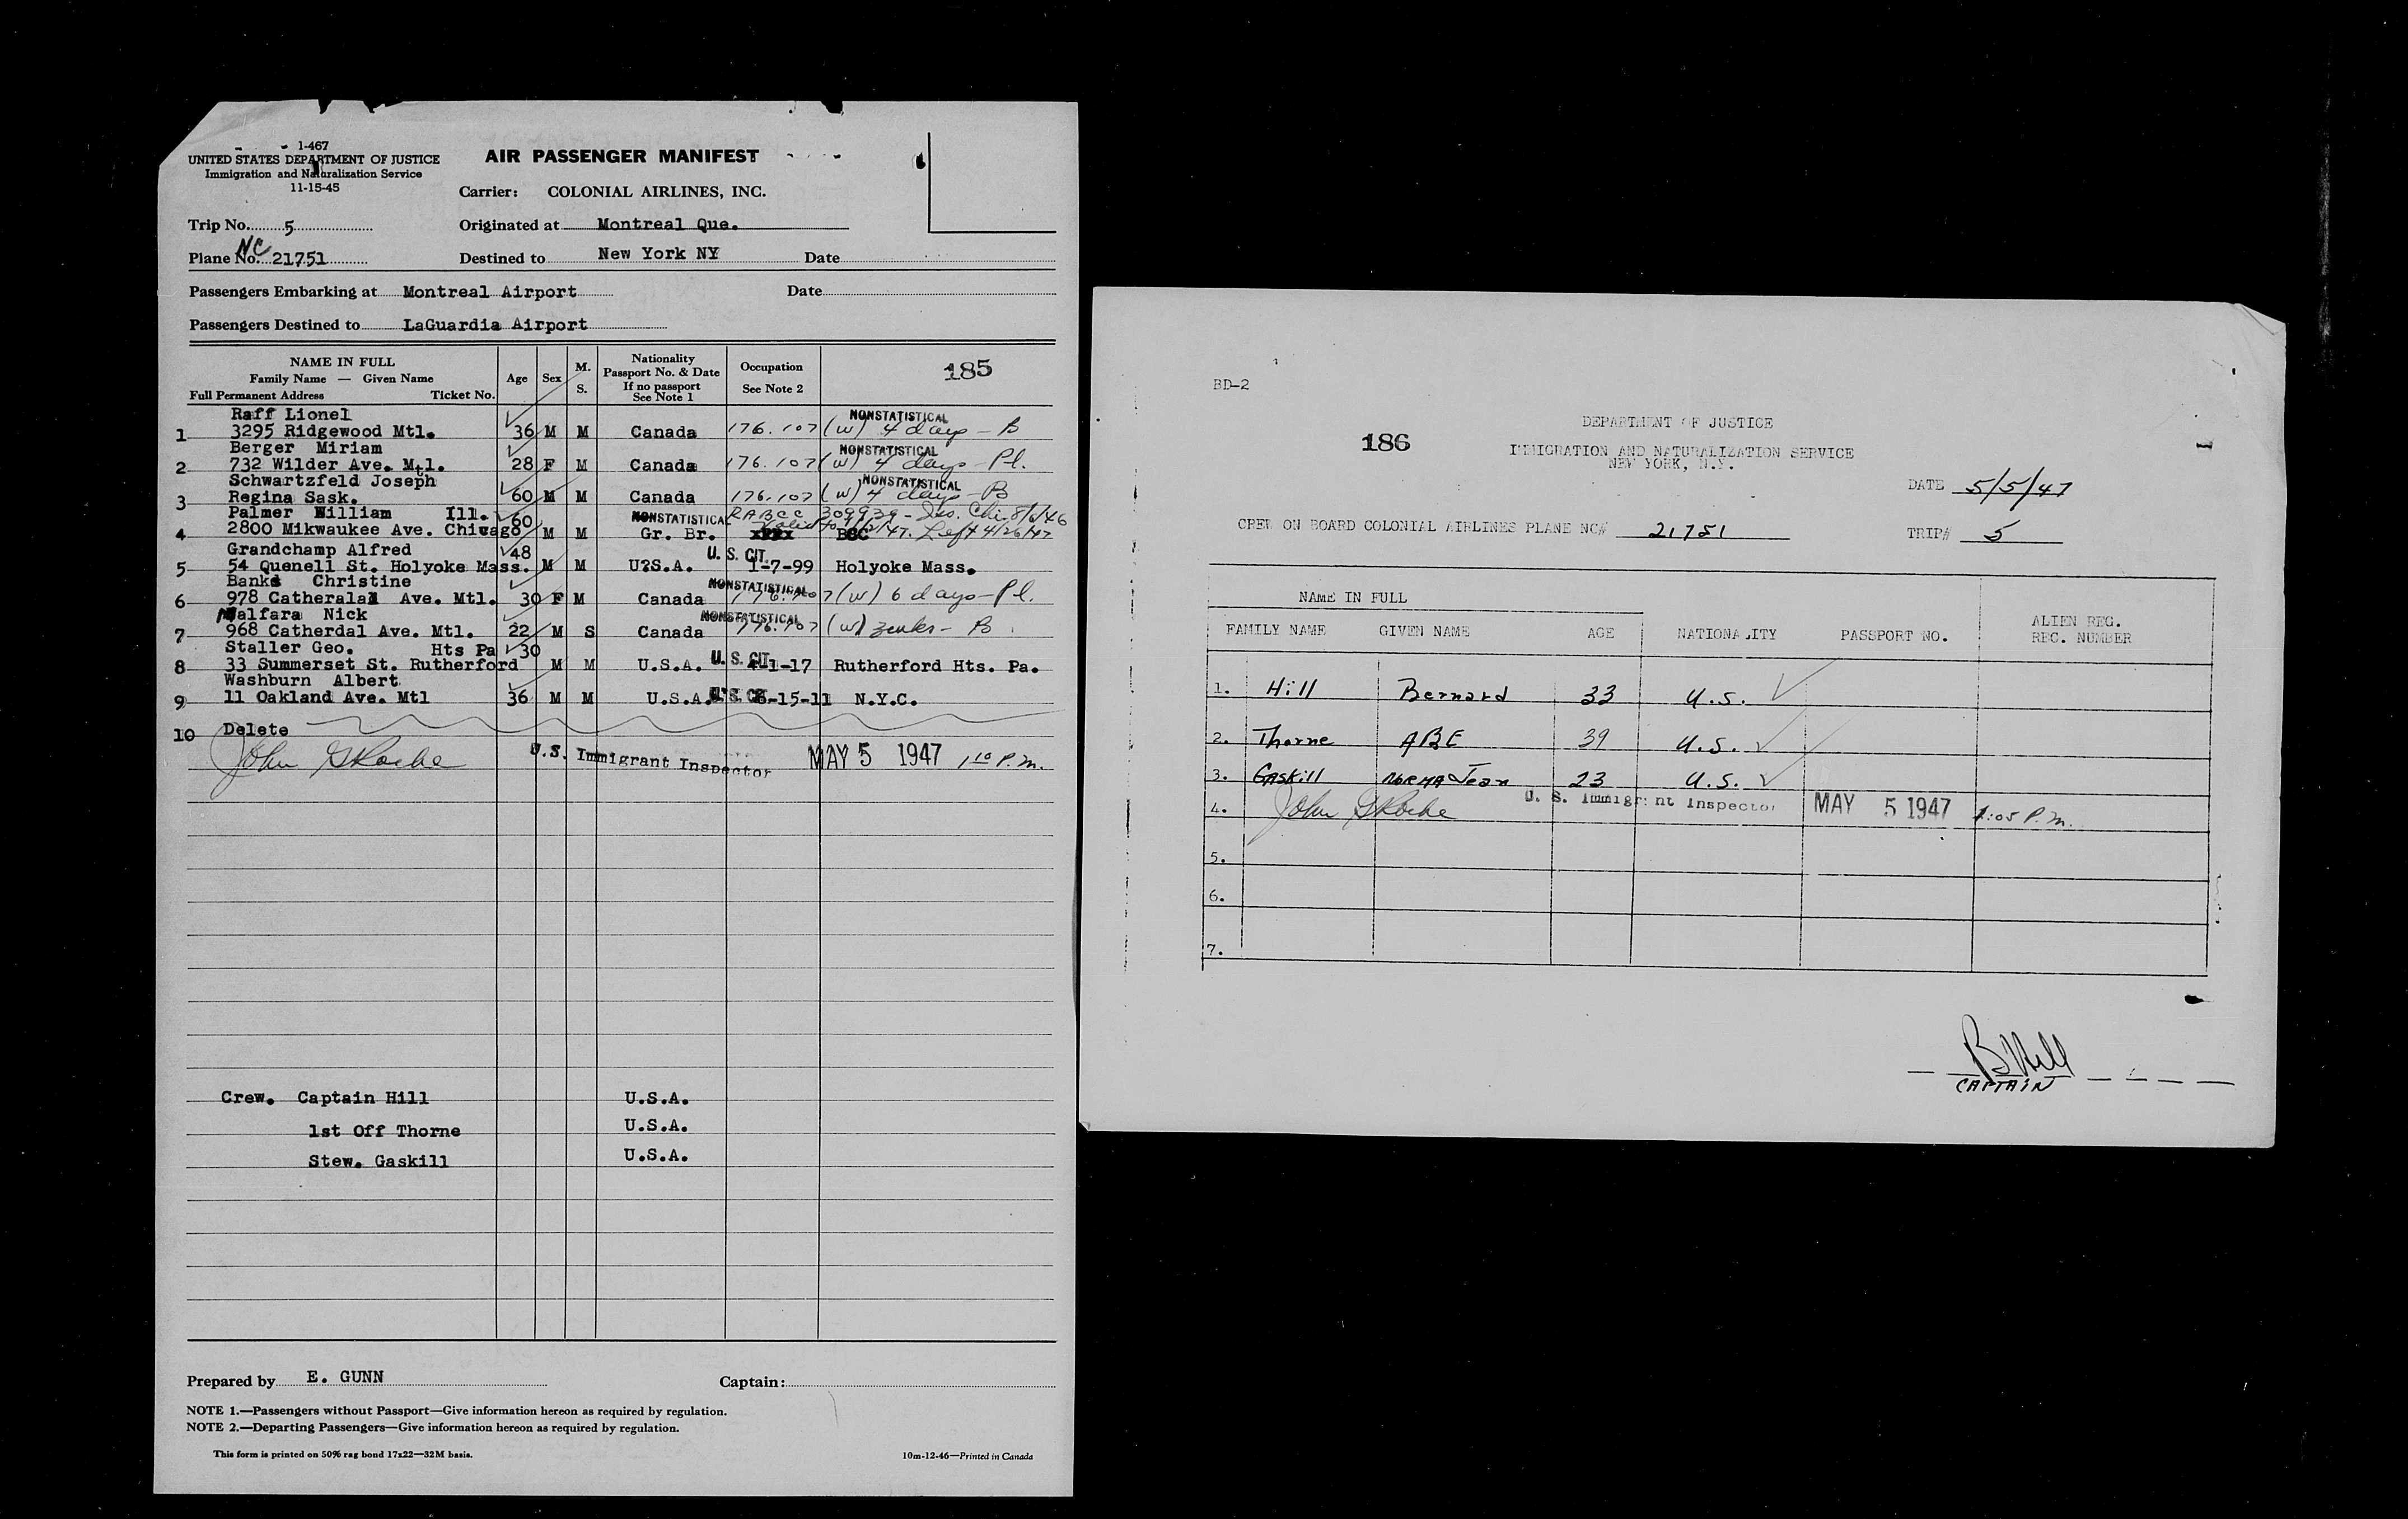 1-467
UNITED STATES DEPARTMENT OF JUSTICE
Immigration and Naturalization Service
11-15-45
AIR PASSENGER MANIFEST
Carrier: COLONIAL AIRLINES, INC.
Trip No. 5
Originated at Montreal Que.
NC
Plane No. 21751
Destined to New York NY Date
Passengers Embarking at Montreal Airport Date
Passengers Destined to LaGuardia Airport
NAME IN FULL
Family Name — Given Name
Full Permanent Address Ticket No.
Age Sex M. S.
Nationality
Passport No. & Date
If no passport
See Note 1
Occupation
See Note 2
185
Raff Lionel NONSTATISTICAL
1 3295 Ridgewood Mtl. 36 M M Canada 176.107 (w) 4 days - B
Berger Miriam NONSTATISTICAL
2 732 Wilder Ave. Mtl. 28 F M Canada 176.107 (w) 4 days - Pl.
Schwartzfeld Joseph NONSTATISTICAL
3 Regina Sask. 60 M M Canada 176.107 (w) 4 days - B
Palmer William Ill. 60 NONSTATISTICAL RABCC 309939 - Iss. Chi. 8/6/46
4 2800 Mikwaukee Ave. Chicago M M Gr. Br. BCC Valid to Left 4/26/47
Grandchamp Alfred 48 U. S. CIT.
5 54 Quenell St. Holyoke Mass. M M U?S.A. 1-7-99 Holyoke Mass.
Banks Christine NONSTATISTICAL
6 978 Catheral Ave. Mtl. 30 F M Canada 176.107 (w) 6 days - Pl.
Malfara Nick NONSTATISTICAL
7 968 Catherdal Ave. Mtl. 22 M S Canada 176.107 (w) - B
Staller Geo. Hts Pa 30 U. S. CIT.
8 33 Summerset St. Rutherford M M U.S.A. 1-17 Rutherford Hts. Pa.
Washburn Albert
9 11 Oakland Ave. Mtl 36 M M U.S.A. U. S. CIT. -15-11 N.Y.C.
10 Delete
John U.S. Immigrant Inspector MAY 5 1947 1 10 P.M.
Crew. Captain Hill U.S.A.
1st Off Thorne U.S.A.
Stew. Gaskill U.S.A.
Prepared by E. GUNN Captain:
NOTE 1.—Passengers without Passport—Give information hereon as required by regulation.
NOTE 2.—Departing Passengers—Give information hereon as required by regulation.
This form is printed on 50% rag bond 17x22—32M basis. 10m-12-46—Printed in Canada
BD-2
186
DEPARTMENT OF JUSTICE
IMMIGRATION AND NATURALIZATION SERVICE
NEW YORK, N.Y.
DATE 5/5/47
CREW ON BOARD COLONIAL AIRLINES PLANE NC# 21751 TRIP# 5
NAME IN FULL
FAMILY NAME GIVEN NAME AGE NATIONALITY PASSPORT NO. ALIEN REG. REC. NUMBER
1. Hill Bernard 33 U.S.
2. Thorne ABE 39 U.S.
3. Gaskill NORMA Jean 23 U.S.
4. John U. S. Immigrant Inspector MAY 5 1947 1:05 P.M.
5.
6.
7.
B Hill
CAPTAIN